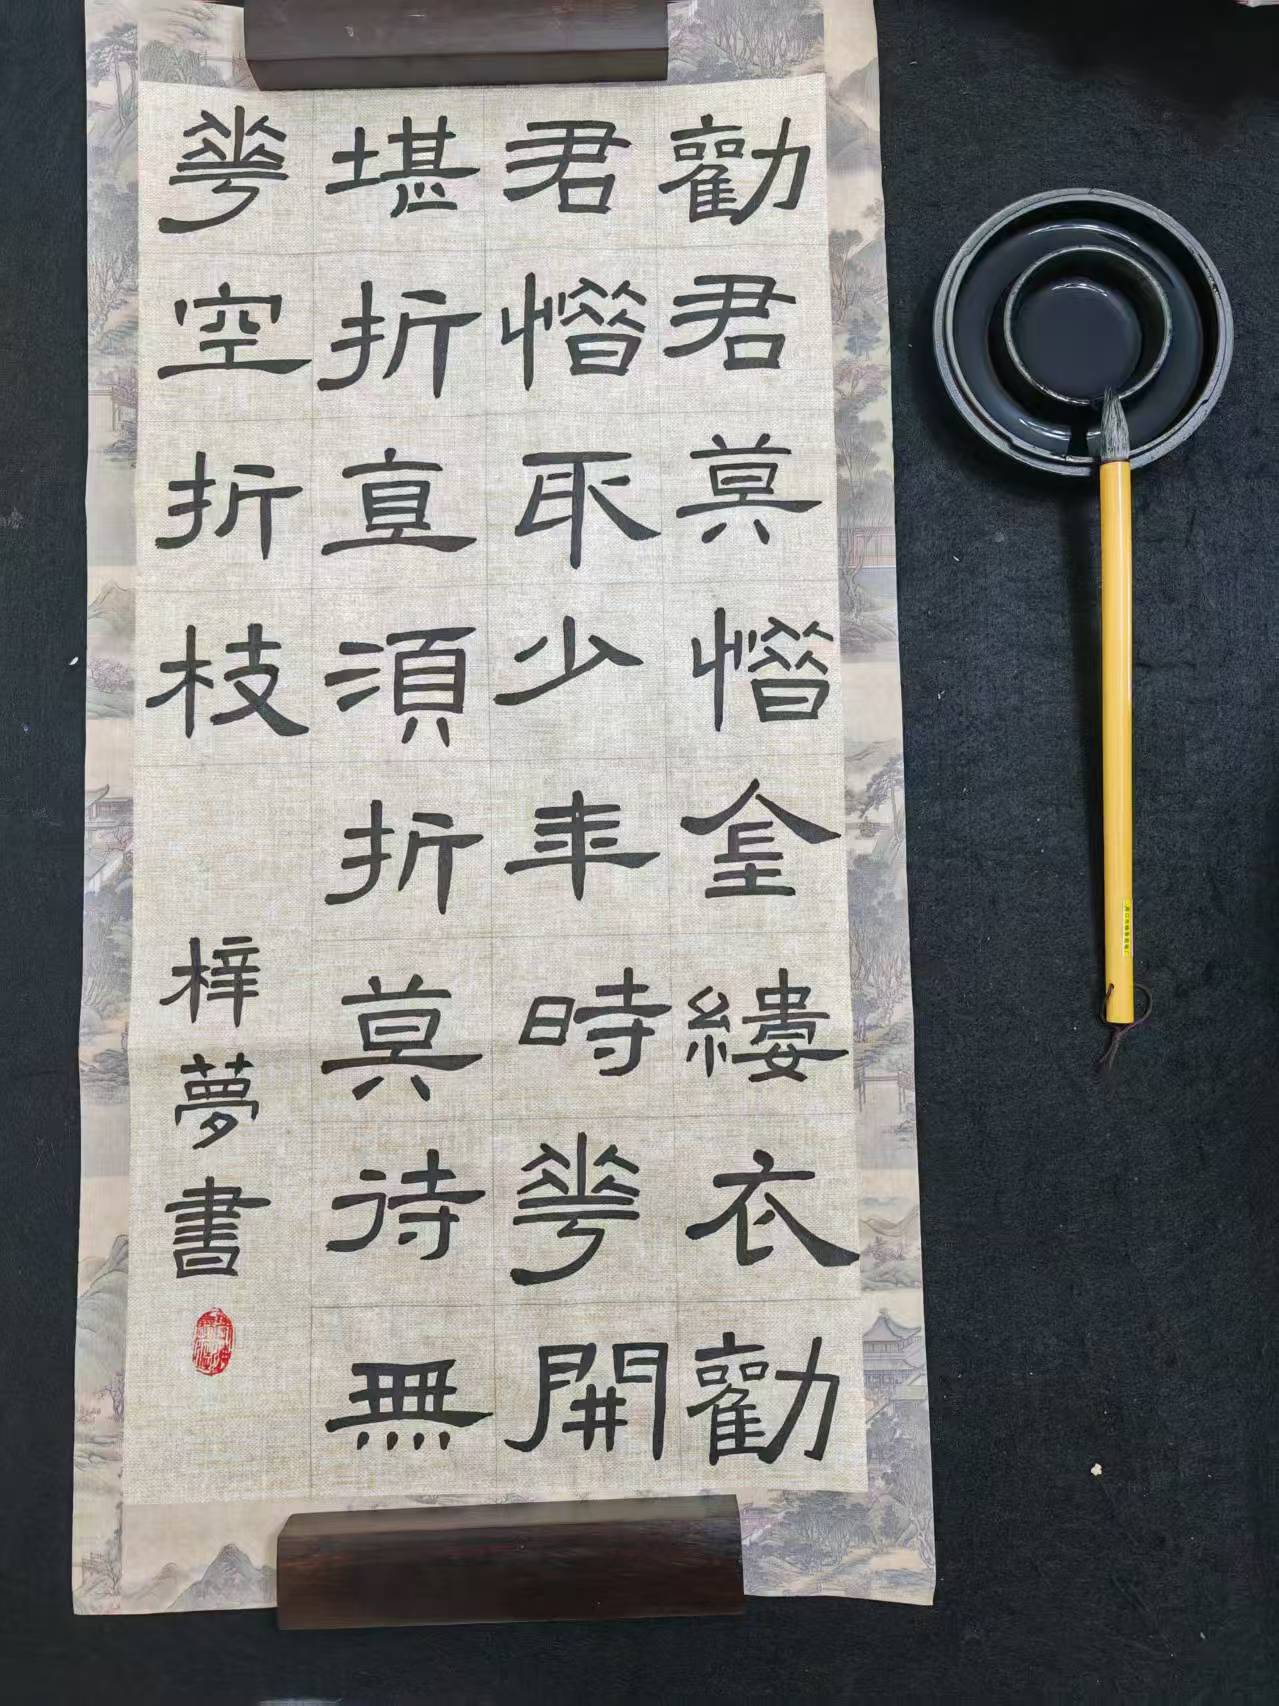 勸君莫惜金縷衣勸
君惜取少年時花開
堪折直須折莫待無
花空折枝
梓夢書